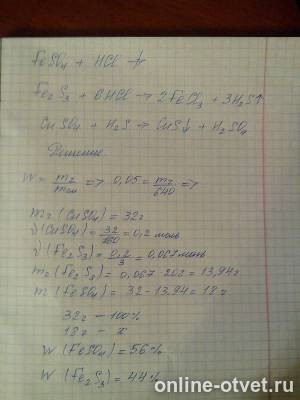 FeSO₄ + HCl ↛
Fe₂S₃ + 6HCl → 2FeCl₃ + 3H₂S↑
CuSO₄ + H₂S → CuS↓ + H₂SO₄
Решение
W = m₂/m => 0,05 = m₂/640 =>
m₂ (CuSO₄) = 32г
ν (CuSO₄) = 32/160 = 0,2 моль
ν (Fe₂S₃) = 0,2/3 = 0,067 моль
m₂ (Fe₂S₃) = 0,067 · 208 = 13,94г
m (FeSO₄) = 32 - 13,94 = 18г
32г — 100%
18г — x
W (FeSO₄) = 56%
W (Fe₂S₃) = 44%
online-otvet.ru